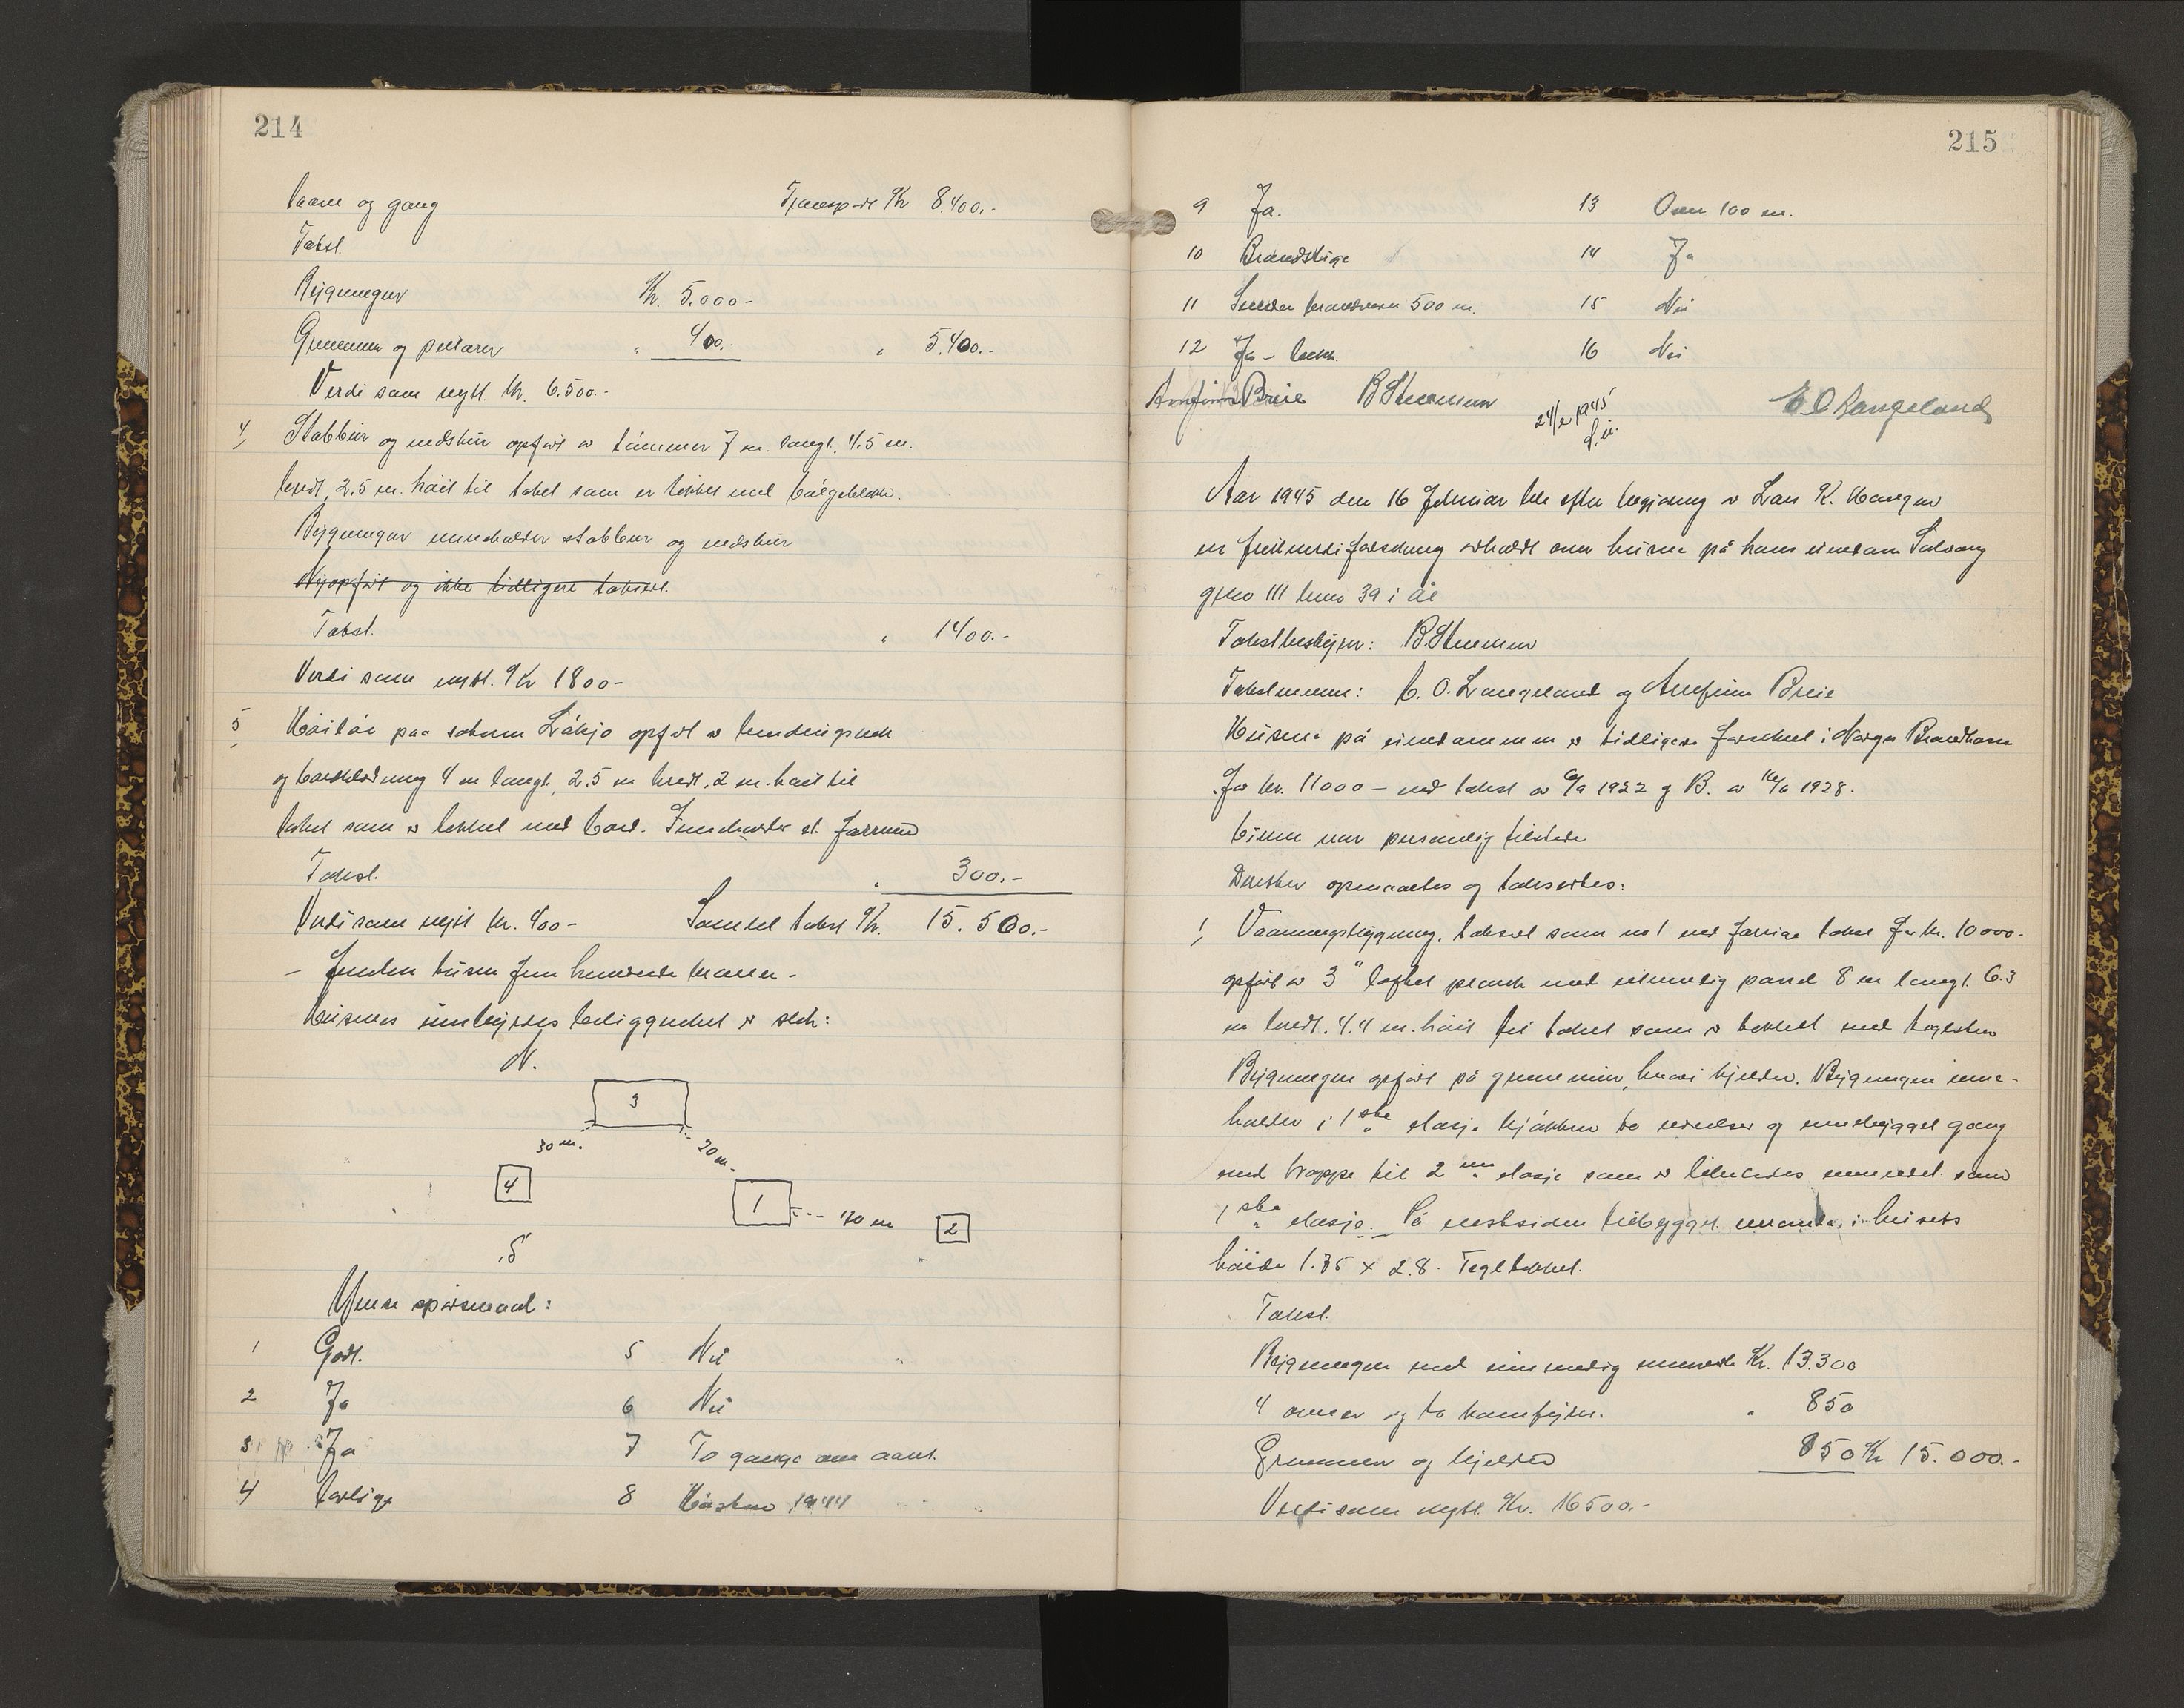 214
laave og gang Transport Kr 8.400.-
Takst.
Bygningen Kr. 5.000-
Grunnmur og pilarer " 400.- " 5.400.-
Verdi som nytt. kr. 6.500.-
4, Stabbur og vedskur opført av tømmer 7 m. langt. 4,5 m.
bredt, 2.5 m. høit til taket som er tekket med bølgeblekk.
Bygningen inneholder stabbur og vedskur
Nyopført og ikke tidligere taksert.
Takst. " 1400.-
Verdi som nytt. Kr 1800-
5, Høiløe paa stølen opført av bindingsverk
og bordkledning 4 m langt, 2.5 m bredt. 2 m. høit til
taket som er tekket med bord. Inneholder et forrum
Takst. " 300.-
Verdi som nytt kr. 400- Samlet takst Kr. 15.500.-
- Femten tusen fem hundrede kroner -
Husenes innbyrdes beliggenhet er slik:
N.
3
30 m. 20 m.
4 1 40 m 2
S
Ymse spørsmaal:
1 Godt. 5 Nei
2 Ja 6 Nei
3 Ja 7 To gange om aaret.
4 Farlige 8 Høsten 1944
215
9 Ja. 13 Over 100 m.
10 Brandstige 14 Ja
11 500 m. 15 Nei
12 Ja - bekk. 16 Nei
Arnfinn Breie B Stuemm 24/2 1945 E O Langeland
Aar 1945 den 16 Februar ble efter begjæring av Lars K. Haugen
en fullverdiforsikring avholdt over husene på hans eiendom Solvang
gno 111 bno 39 i Øie
Takstbestyrer:
Takstmenn: E. O. Langeland og Arnfinn Breie
Husene på eiendommen er tidligere forsikret i Norges Brandkasse
for kr. 11000 - ved takst av 6/9 1922 og B. av 16/6 1928.
Eieren var personlig tilstede
Derefter opmaaltes og taksertes:
1, Vaaningsbygning, taksert som no 1 ved forrige takst for kr. 10000.-
opført av 3" laftet plank med utvendig panel 8 m langt. 6.3
m bredt. 4.4 m. høit til taket som er tekket med teglsten
Bygningen opført på grunnmur, hvori kjelder. Bygningen inne-
holder i 1ste etasje kjøkken to værelser og innebygget gang
med trappe til 2nen etasje som er likeledes innredet som
1ste etasje. På vestsiden tilbygget veranda i husets
høide 1.35 x 2.8. Tegltekket.
Takst.
Bygningen med innvendig innrede Kr. 13.300
4 ovner og to kamfyrer. " 850
Grunnmur og kjelder 850 Kr 15.000.-
Verdi som nytt. Kr. 16500.-